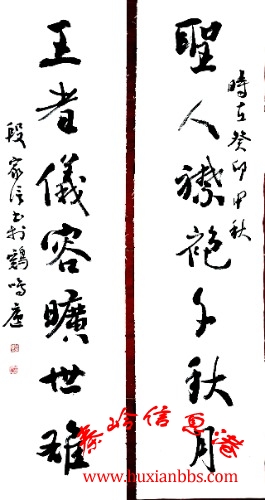 聖人襟袍千秋月
時在癸卯中秋
王者儀容曠世雄
段家信書於鶴鳴廬
www.buxianbbs.com